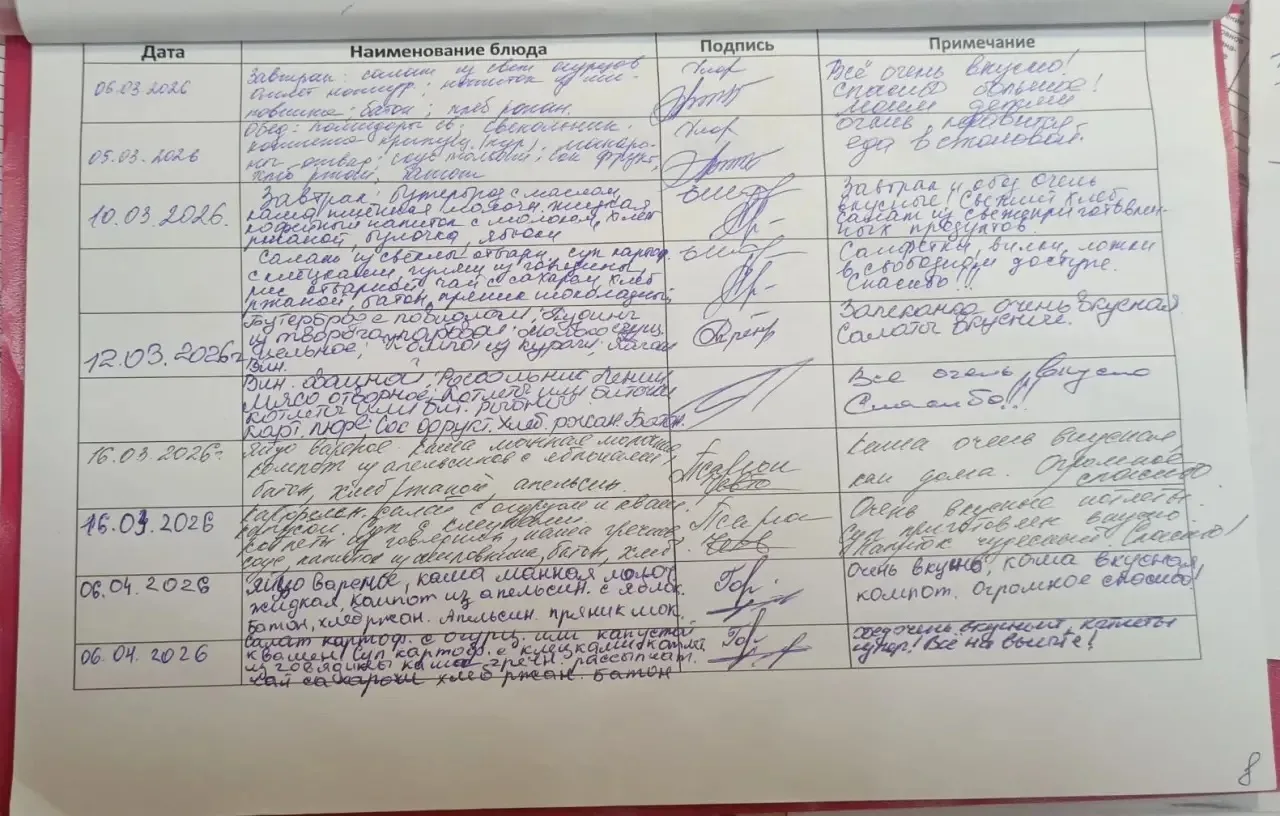 Дата Наименование блюда Подпись Примечание
06.03.2026
Завтрак: салат из свеж огурцов
омлет натур; напиток из ши-
повника; батон; хлеб ржан.
Всё очень вкусно!
Спасибо большое!
Моим детям
05.03.2026
Обед: помидоры св; свекольник.
котлета куриная; макаро-
ны отвар; соус томатн; сок фрукт,
хлеб ржаной; батон
очень нравится
еда в столовой.
10.03.2026.
Завтрак: бутерброд с маслом,
каша пшённая молочн. жидкая
кофейный напиток с молоком, хлеб
ржаной, булочка, яблоки
Завтрак и обед очень
вкусные! Свежий хлеб,
салат из свежеприготовлен-
ных продуктов.
Салат из свеклы отварн, суп картоф.
с клецками, гуляш из говядины,
рис отварной, чай с сахаром, хлеб
ржаной, батон, пряник шоколадный
Салфетки, вилки, ложки
в свободном доступе.
Спасибо!!!
12.03.2026г
Бутерброд с повидлом; Пудинг
из творога паровой; молоко сгущ.
цельное; Компот из кураги; Батон
Вит.
Запеканка очень вкусная
Салаты вкусные.
Вин.
Рассольник Ленин
Мясо отворное; Котлеты или биточки
котлеты или бит. рыбный
Карт. пюре; Сок фрукт. Хлеб. ржан. Батон.
Все очень вкусно
Спасибо!!!
16.03.2026г.
Яйцо варёное. Каша манная молочная
компот из апельсинов с яблоками,
батон, хлеб ржаной, апельсин.
Каша очень вкусная,
как дома. Огромное
спасибо
16.03.2026
Картофельн. салат с огурцом и кваш.
капустой. Суп с клецками.
котлеты из говядины, каша гречнев.
соус, напиток из шиповника, батон, хлеб
Очень вкусные котлеты.
Суп приготовлен вкусно
Напиток чудесный! Спасибо!
06.04.2026
Яйцо вареное, каша манная молоч
жидкая, компот из апельсин. с яблок.
Батон, хлеб ржан. Апельсин. пряник шок.
Гор
Очень вкусно, каша вкусная,
компот. Огромное спасибо!
06.04.2026
Салат картоф. с огурц. или капустой
квашен. Суп картоф. с клецками. Котлет.
из говядины каша гречн. рассыпчат.
Чай с сахаром хлеб ржан. Батон
Гор
Всё очень вкусно, котлеты
супер! Всё на высоте!
8